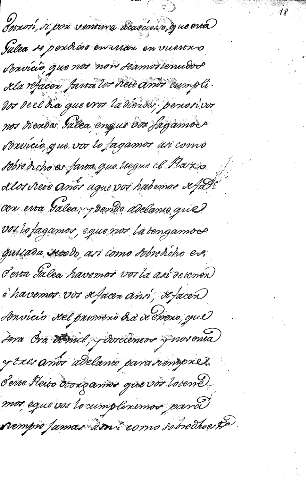 18
Pero si, si por ventura acaeciese, que esta
Galea se perdiese en mar en vuestro
servicio, que nos non seamos tenudos
de la refacer fasta los seis años cumpli-
dos del dia que vos la dieredes; pero si vos
nos diesedes Galea, en que vos fagamos
servicio, que vos lo fagamos asi como
sobredicho es fasta, que llegue el Plazo
de los seis años a que vos habemos de
con esta Galea; y dende adelante, que
vos lo fagamos, e que nos la tengamos
guisada, de todo, asi como sobredicho es.
Esta Galea havemos vos la asi de tener
è havemos vos de facer ansi, de facer
servicio del primero dia de Enero, que
sera Era de mil, y doscientos y noventa
y tres años adelante para siempre.
Este Pleito otorgamos que vos lo tene-
mos, e que vos lo cumpliremos, para
siempre jamas asi como sobredicho es